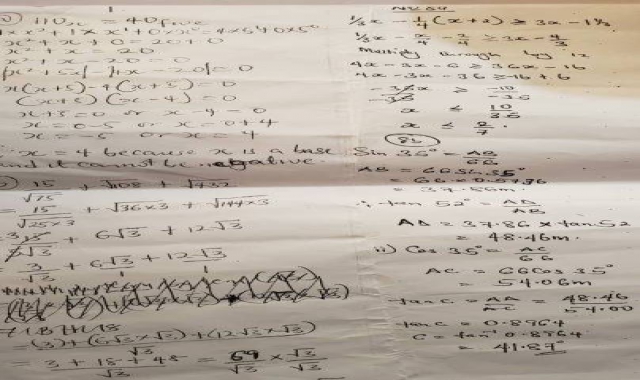 1
110x = 40five
1×x² + 1×x¹ + 0×x⁰ = 4×5¹ 0×5⁰
x² + x + 0 = 20 + 0
x² + x = 20
x² + x - 20 = 0
x(x+5) - 4(x+5) = 0
(x+5)(x-4) = 0
x+5 = 0 or x-4 = 0
x = 0-5 or x = 0+4
x = -5 or x = 4
x = 4 because x is a base
and it cannot be negative
15 + √108 + √432
√75
= 15 + √36×3 + √144×3
√25×3
+ 6√3 + 12√3
3 + 6√3 + 12√3
√3 1 1
= (3) + (6√3 × √3) + (12√3 × √3)
√3
= 3 + 18 + 48 = 69 × √3
√3 √3 √3
⅓x - ¼(x+2) ≥ 3x - 1⅓
⅓x - x/4 - 2/4 ≥ 3x - 4/3
Multiply through by 12
4x - 3x - 6 ≥ 36x - 16
4x - 3x - 36 ≥ -16 + 6
x ≤ 10/35
x ≤ 2/7
Sin 35° = AB/66
AB = 66 Sin 35°
= 66 × 0.5736
= 37.86m
∴ tan 52° = AD/AB
AD = 37.86 × tan 52
= 48.46m
ii) Cos 35° = AC/66
AC = 66 Cos 35°
= 54.06m
tan C = = 48.46
tan C = 0.8964
C = tan⁻¹ 0.8964
= 41.87°